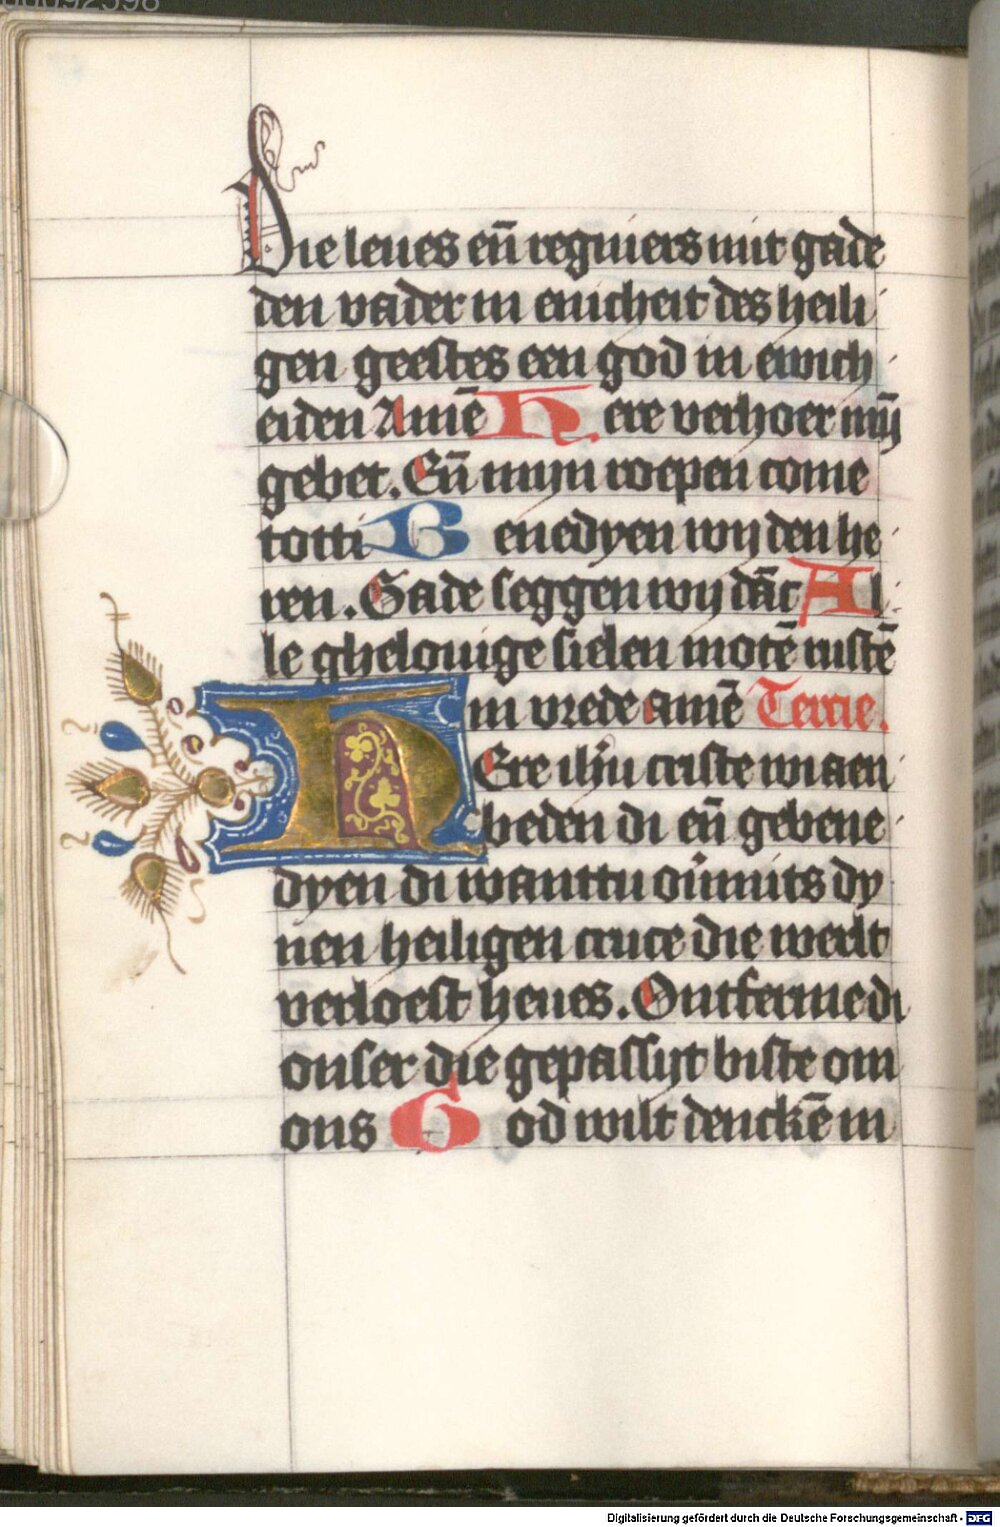 Die leues eñ regniers mit gade
den vader in enicheit des heili
gen geestes een god in ewich
eiden Amē Here verhoer mŋ̄
gebet. Eñ mijn roepen come
totti Benedyen wij den he
ren. Gade seggen wij dāc Al
le ghelouige sielen motē rustē
in vrede amē Tercie.
HEre ihū criste wi aen
beden di eñ gebene
dyen di wanttu ouͥmits dy
nen heiligen cruce die werlt
verloest heues. Ontferme di
onser die gepassijt biste om
ons God wilt denckē in
Digitalisierung gefördert durch die Deutsche Forschungsgemeinschaft - DFG